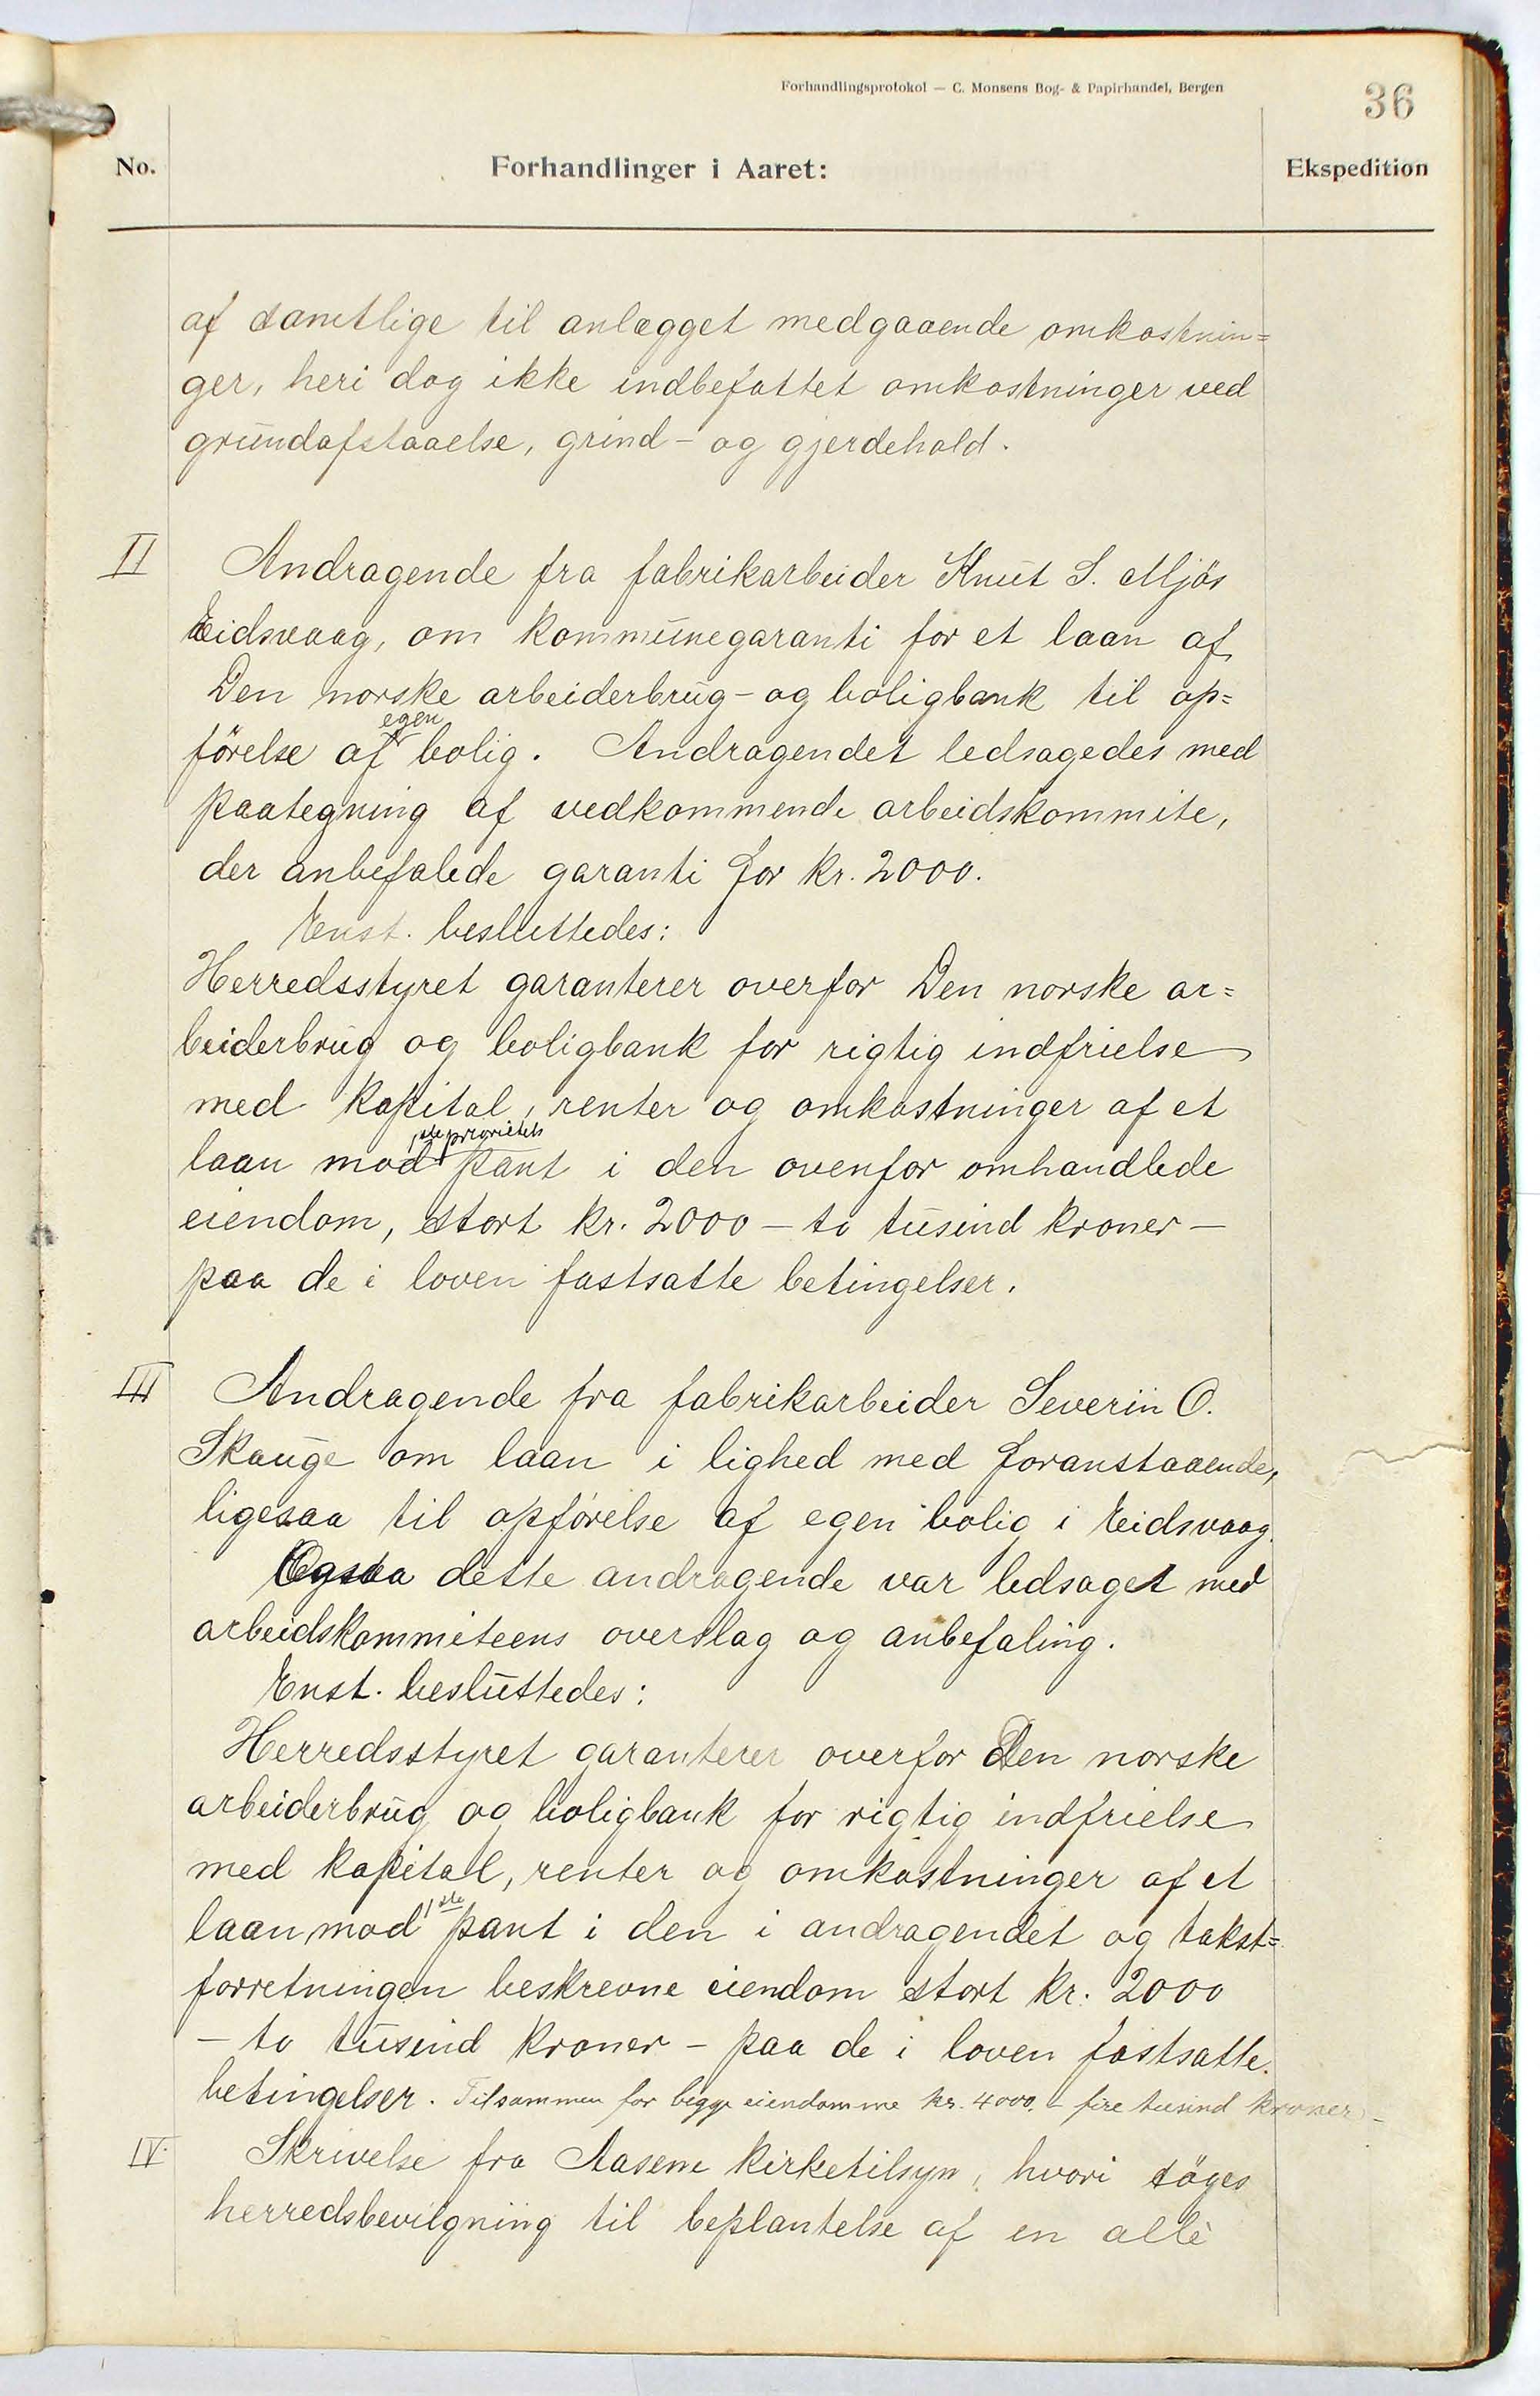 Forhandlingsprotokol — C. Monsens Bog- & Papirhandel, Bergen
36
No.
Forhandlinger i Aaret:
Ekspedition
af samtlige til anlægget medgaaende omkostnin=
ger, heri dog ikke indbefattet omkostninger ved
grundafstaaelse, grind- og gjerdehold.
II Andragende fra fabrikarbeider Knut S. Mjös
Eidsvaag, om kommunegaranti for et laan af
Den norske arbeiderbrug- og boligbank til op=
egen
förelse af bolig. Andragendet ledsagedes med
paategning af vedkommende arbeidskommite,
der anbefalede garanti for kr. 2000.
Enst. besluttedes:
Herredsstyret garanterer overfor Den norske ar=
beiderbrug og boligbank for rigtig indfrielse
med kapital, renter og omkostninger af et
1ste prioritets
laan mod pant i den ovenfor omhandlede
eiendom, stort kr. 2000 — to tusind kroner —
paa de i loven fastsatte betingelser.
III Andragende fra fabrikarbeider Severin O.
Skauge om laan i lighed med foranstaaende,
ligesaa til opförelse af egen bolig i Eidsvaag.
Ogsaa dette andragende var ledsaget med
arbeidskommiteens overslag og anbefaling.
Enst. besluttedes:
Herredsstyret garanterer overfor Den norske
arbeiderbrug og boligbank for rigtig indfrielse
med kapital, renter og omkostninger af et
1ste
laan mod pant i den i andragendet og takst=
forretningen beskrevne eiendom stort kr. 2000
— to tusind kroner — paa de i loven fastsatte
betingelser. Tilsammen for begge eiendomme kr. 4000. — fire tusind kroner —
IV. Skrivelse fra Aasene kirketilsyn, hvori söges
herredsbevilgning til beplantelse af en allè